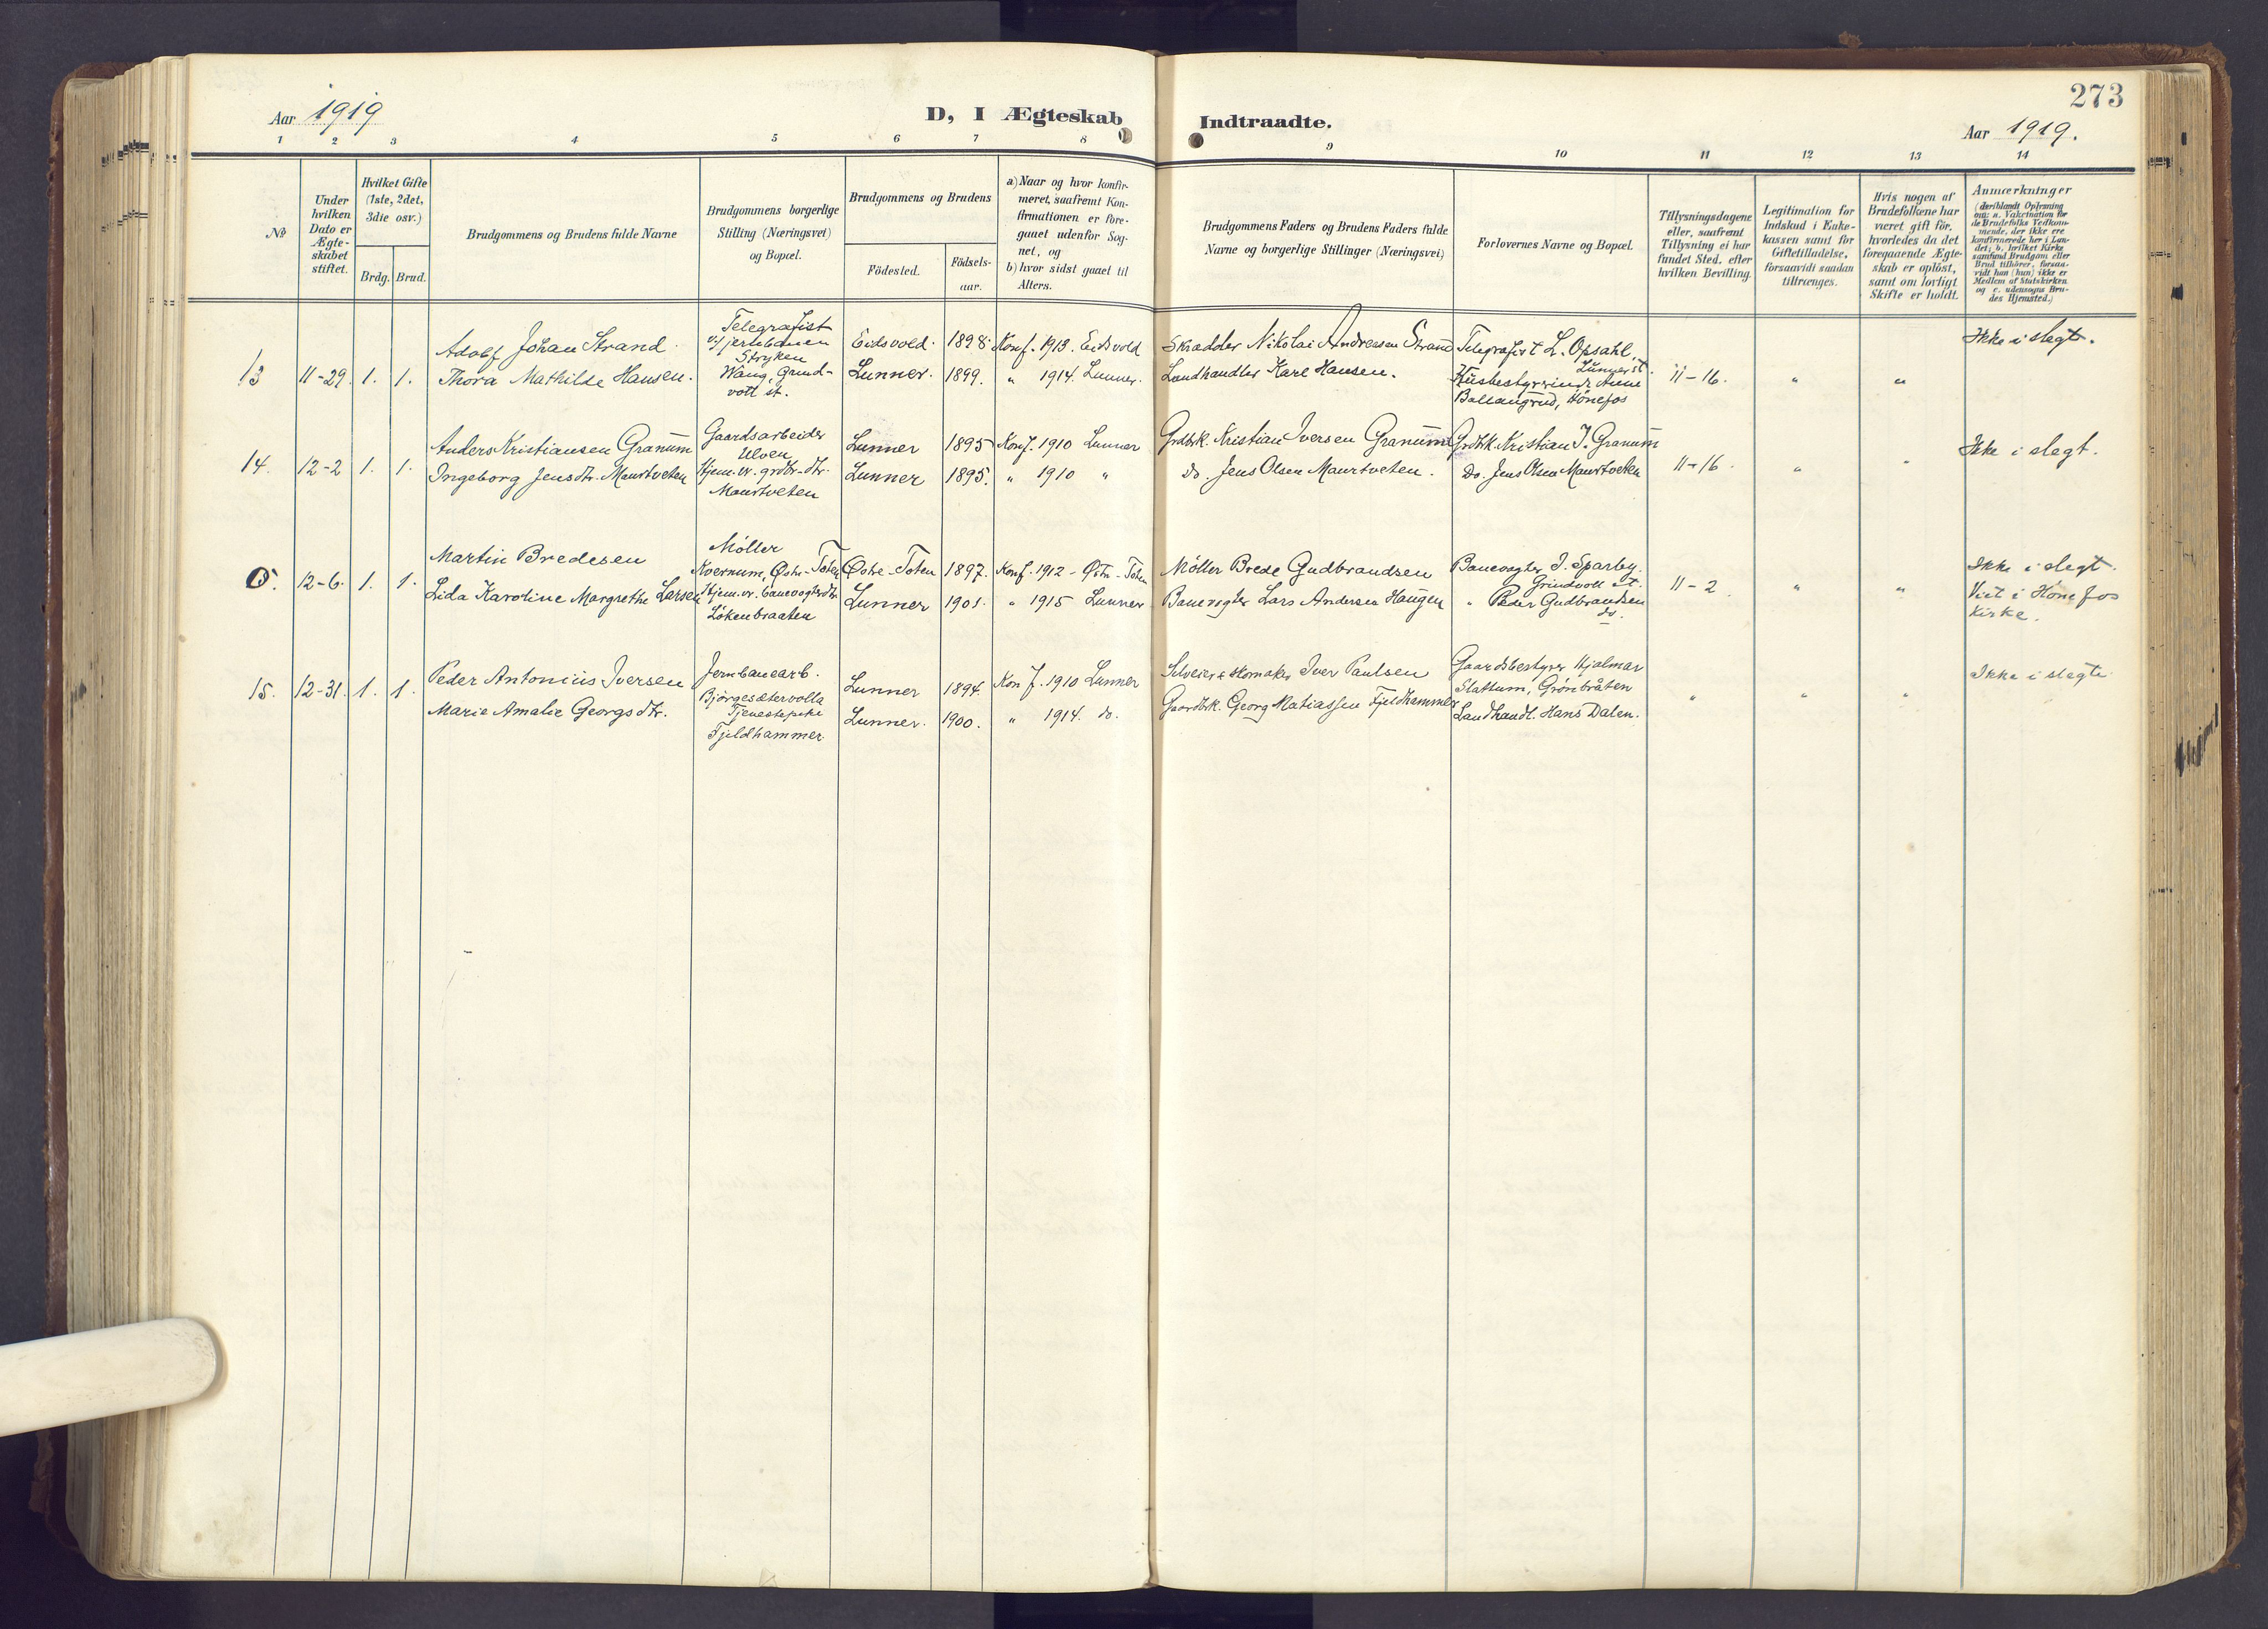 273
Aar 1919
D, I Ægteskab Indtraadte.
Aar 1919.
1 2 3 4 5 6 7 8 9 10 11 12 13 14
№
Under hvilken Dato er Ægte-skabet stiftet.
Hvilket Gifte (1ste, 2det, 3die osv.)
Brdg. Brud.
Brudgommens og Brudens fulde Navne
Brudgommens borgerlige Stilling (Næringsvei) og Bopæl.
Brudgommens og Brudens
Födested.
Födsels-aar.
a) Naar og hvor konfir-
meret, saafremt Kon-
firmationen er fore-
gaaet udenfor Sog-
net, og
b) hvor sidst gaaet til
Alters.
Brudgommens Faders og Brudens Faders fulde
Navne og borgerlige Stillinger (Næringsvei)
Forlovernes Navne og Bopæl.
Tillysningsdagene
eller, saafremt
Tillysning ei har
fundet Sted, efter
hvilken Bevilling.
Legitimation for
Indskud i Enke-
kassen samt for
Giftetilladelse,
forsaavidt saadan
tiltrænges.
Hvis nogen af
Brudefolkene har
været gift för,
hvorledes da det
foregaaende Ægte-
skab er oplöst,
samt om lovligt
Skifte er holdt.
Anmærkninger
(deriblandt Oplysning
om: a. Vakcination for
de Brudefolks Vedkom-
mende, der ikke ere
konfirmerede her i Lan-
det; b. hvilket Kirke-
samfund Brudgom eller
Brud tilhörer, forsaa-
vidt han (hun) ikke er
Medlem af Statskirken
og c. udensogns Bru-
des Hjemsted.)
13 11-29. 1. 1.
Adolf Johan Strand.
Thora Mathilde Hansen.
Telegrafist
v/jernbanen
Stryken
Wang, Grind-
voll st.
Eidsvold. 1898. Konf. 1913. Eidsvold
Lunner. 1899. " 1914. Lunner.
Skrædder Nikolai Andreassen Strand
Landhandler Karl Hansen.
Telegrafist L. Opsahl,
Lunner st.
Husbestyrerinde Anne
Ballangrud, Hönefos
11-16. " "
Ikke i slegt.
14. 12-2 1. 1.
Anders Kristiansen Granum
Ingeborg Jensdtr. Maurtveten
Gaardsarbeider
Ulven
Hjem.v. grdbr.dtr.
Maurtveten
Lunner 1895 Konf. 1910 Lunner
Lunner 1895. " 1910 "
Grdbrk. Kristian Iversen Granum
Do. Jens Olsen Maurtveten.
Grdbrk. Kristian I. Granum
Do. Jens Olsen Maurtveten
11-16. " "
Ikke i slegt.
O. 12-6. 1. 1.
Martin Bredesen
Lida Karoline Margrethe Larsen
Möller
Kvernum, Østre-Toten
Hjem.v. banevogterdtr.
Lökenbraaten
Østre-Toten 1897. Konf. 1912 - Østre-Toten
Lunner 1901. " 1915 Lunner
Möller Brede Gudbrandsen
Banevogter Lars Andersen Haugen
Banevogter J. Sparby.
Grindvoll st.
" Peder Gudbrandsen
do.
11-2. " "
Ikke i slegt.
Viet i Hönefos
kirke.
15. 12-31. 1. 1.
Peder Antonius Iversen
Marie Amalie Georgsdtr.
Jernbanearb.
Bjørgesætervolla
Tjenestepike
Fjeldhammer
Lunner 1894. Konf. 1910 Lunner
Lunner. 1900. " 1914. do.
Selveier & skomaker Iver Paulsen
Gaardbrk. Georg Matiassen Fjeldhammer
Gaardsbestyrer Hjalmar
Slattum, Grönbråten
Landhandl. Hans Dalen.
" " "
Ikke i slegt